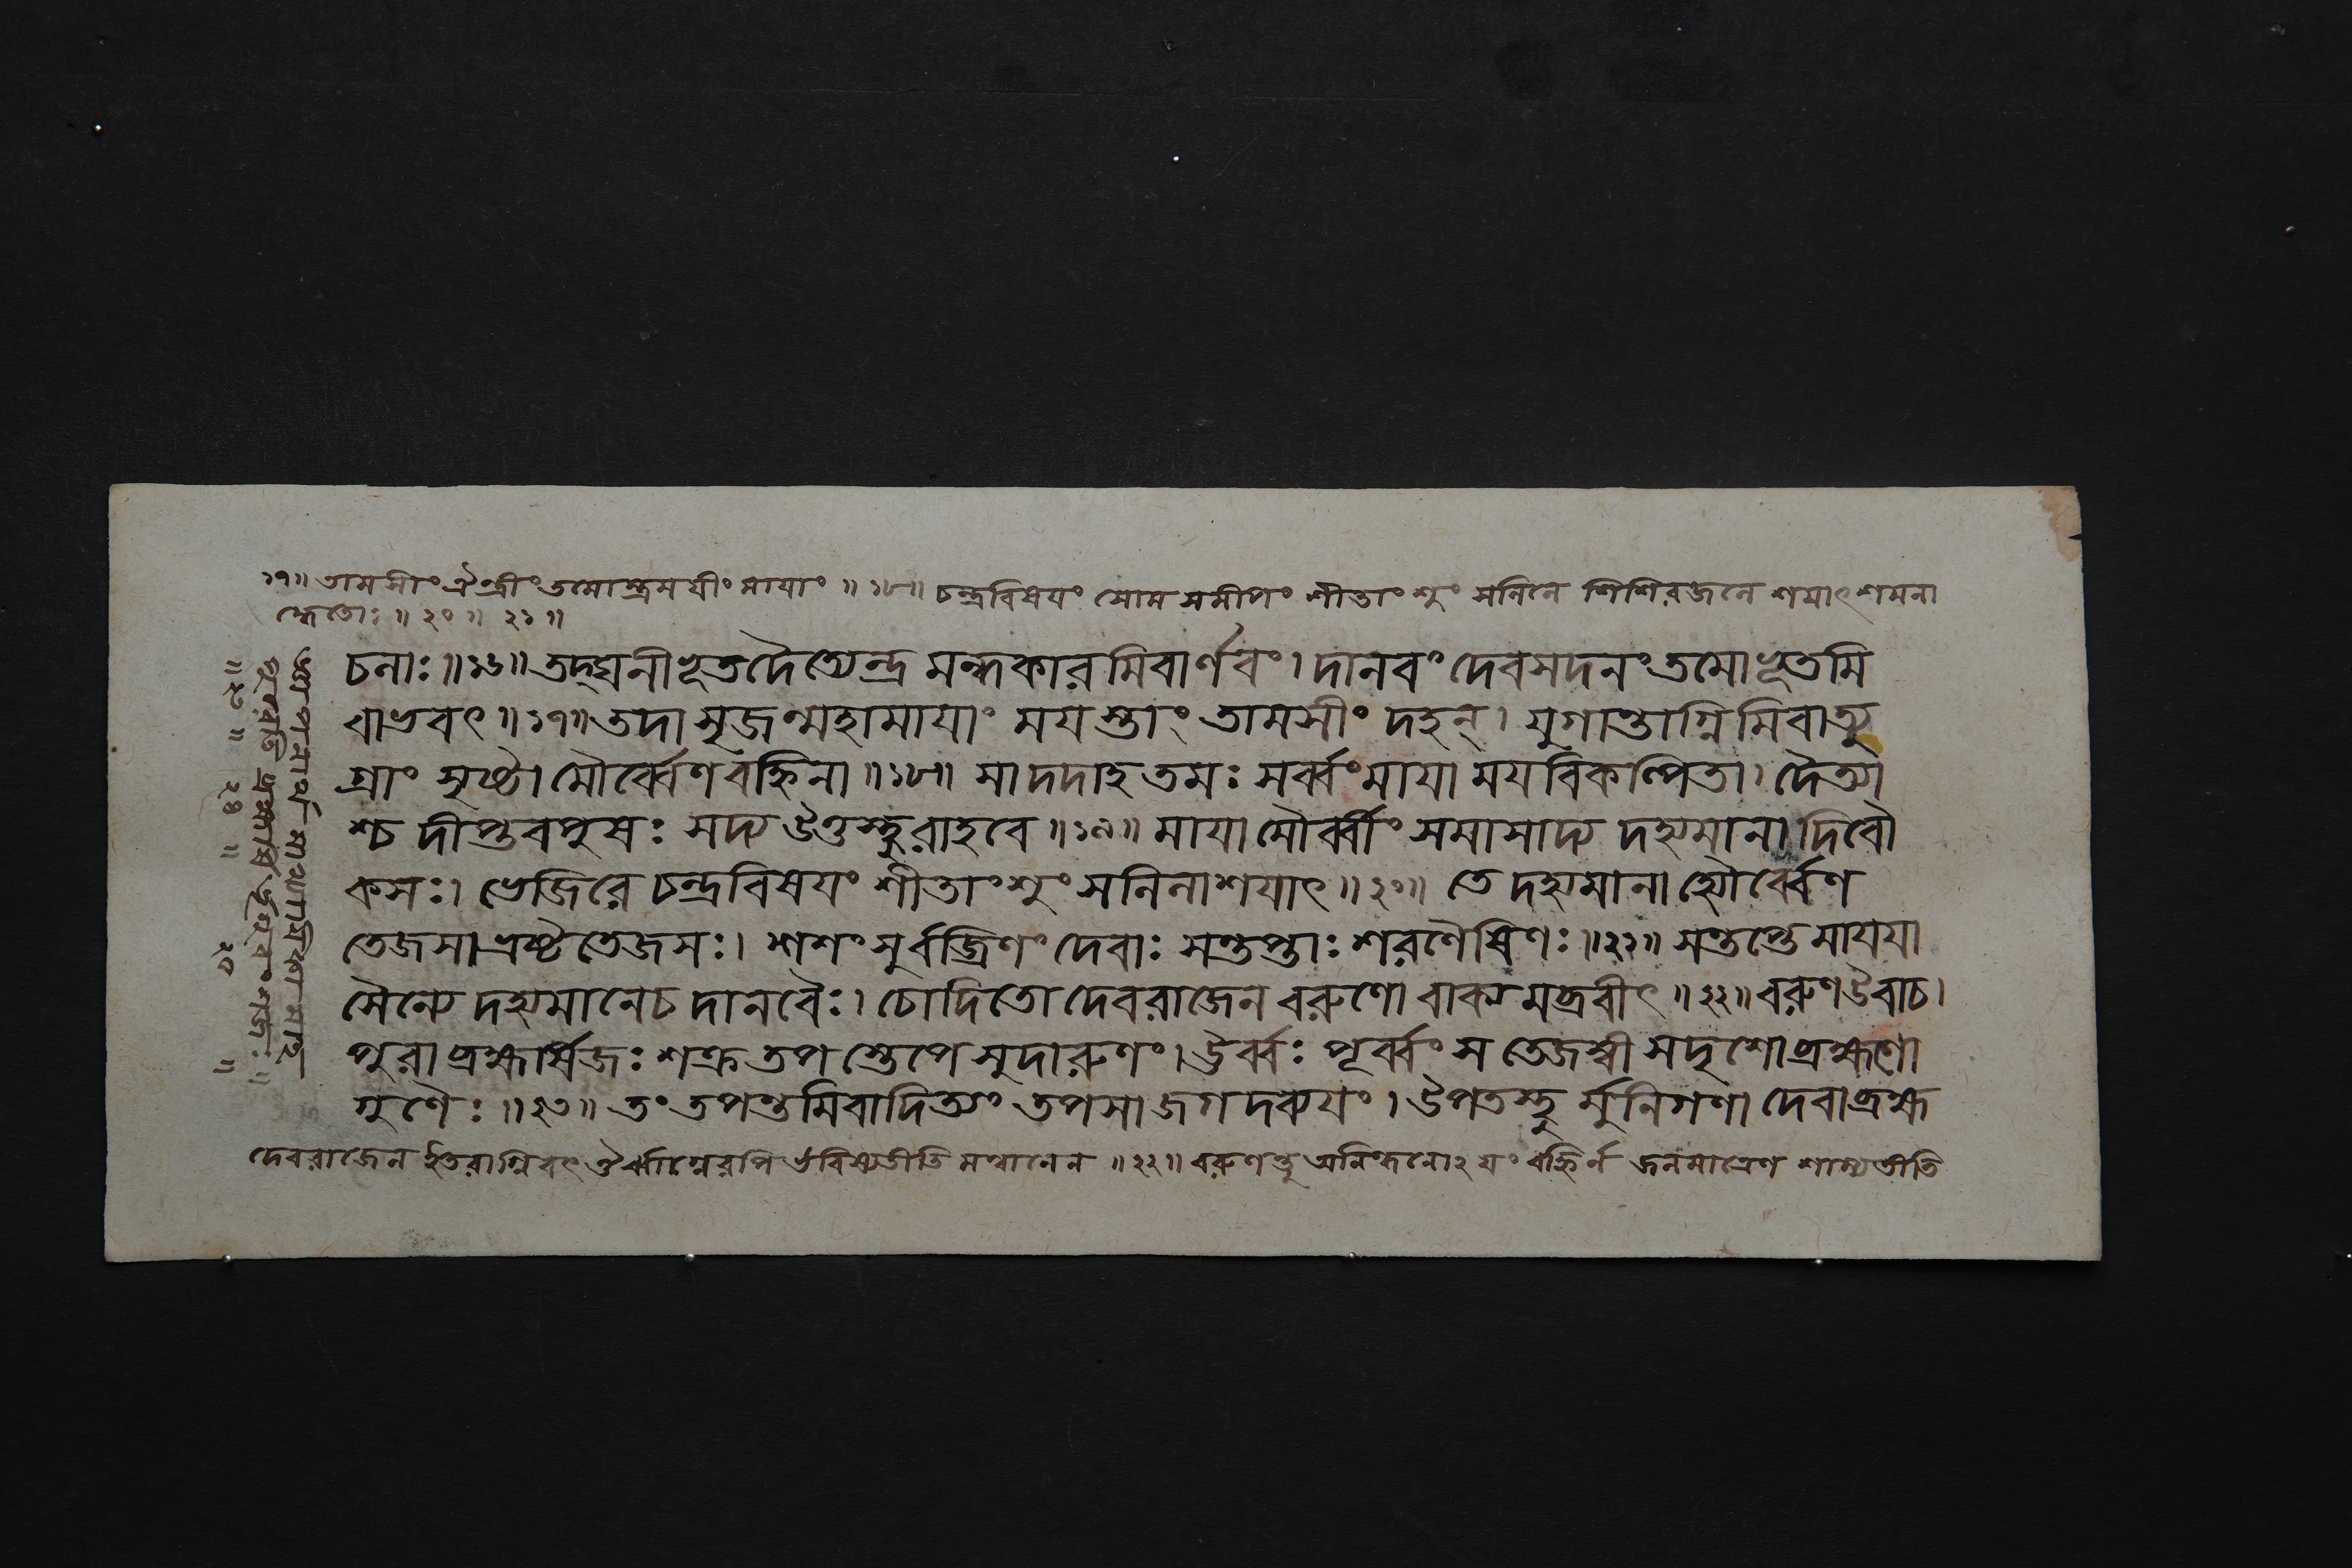 ১৭॥ তামসীং ঐন্দ্রীং তমোন্ধ্রময়ীং মায়াং ॥১৮॥ চন্দ্রবিষয়ং সোমসমীপং শীতাংশুং সলিলে শিশিরজলে শমাৎ শমনা
দ্ধেতোঃ ॥ ২০ ॥ ২১ ॥
চনাঃ ॥১৬॥ তদ্ঘনীভূতদৈত্যেন্দ্র মন্ধকারমিবার্ণবং। দানবং দেবসদনং তমোভূতমি
বাভবৎ ॥১৭॥ তদা সৃজন্মহামায়াং ময়স্তাং তামসীং দহন্। যুগান্তাগ্নিমিবাত্যু
গ্রাং সৃষ্টামৌর্ব্বেণবহ্নিনা ॥১৮॥ সাদদাহ তমঃ সর্ব্বংমায়া ময়বিকল্পিতা। দৈত্যা
শ্চ দীপ্তবপুষঃ সদ্য উত্তস্থুরাহবে ॥১৯॥ মায়ামৌর্ব্বীং সমাসাদ্য দহ্যমানা দিবৌ
কসঃ। ভেজিরে চন্দ্রবিষয়ং শীতাংশুং সলিলাশয়াৎ ॥২০॥ তে দহ্যমানা হ্যৌর্ব্বেণ
তেজসা ভ্রষ্টতেজসঃ। শশংসুর্বজ্রিণং দেবাঃ সন্তপ্তাঃ শরণৈষিণঃ ॥২১॥ সন্তপ্তে মায়য়া
সৈন্যে দহ্যমানেচ দানবৈঃ। চোদিতো দেবরাজেন বরুণো বাক্যমব্রবীৎ ॥২২॥ বরুণউবাচ।
পুরা ব্রহ্মর্ষিজঃ শক্র তপস্তেপে সুদারুণং। ঊর্ব্বঃ পূর্ব্বং স তেজস্বী সদৃশো ব্রহ্মণো
গুণৈঃ ॥২৩॥ তং তপন্তমিবাদিত্যং তপসা জগদব্যয়ং। উপতস্থু র্মুনিগণা দেবাব্রহ্ম
দেবরাজেন ইতরাগ্নিবৎ ঔর্ব্বাগ্নেরপি ভবিষ্যতীতি মন্বানেন ॥২২॥ বরুণস্তু অনিন্ধনোঽয়ং বহ্নির্ন জলমাত্রেণ শাম্যতীতি